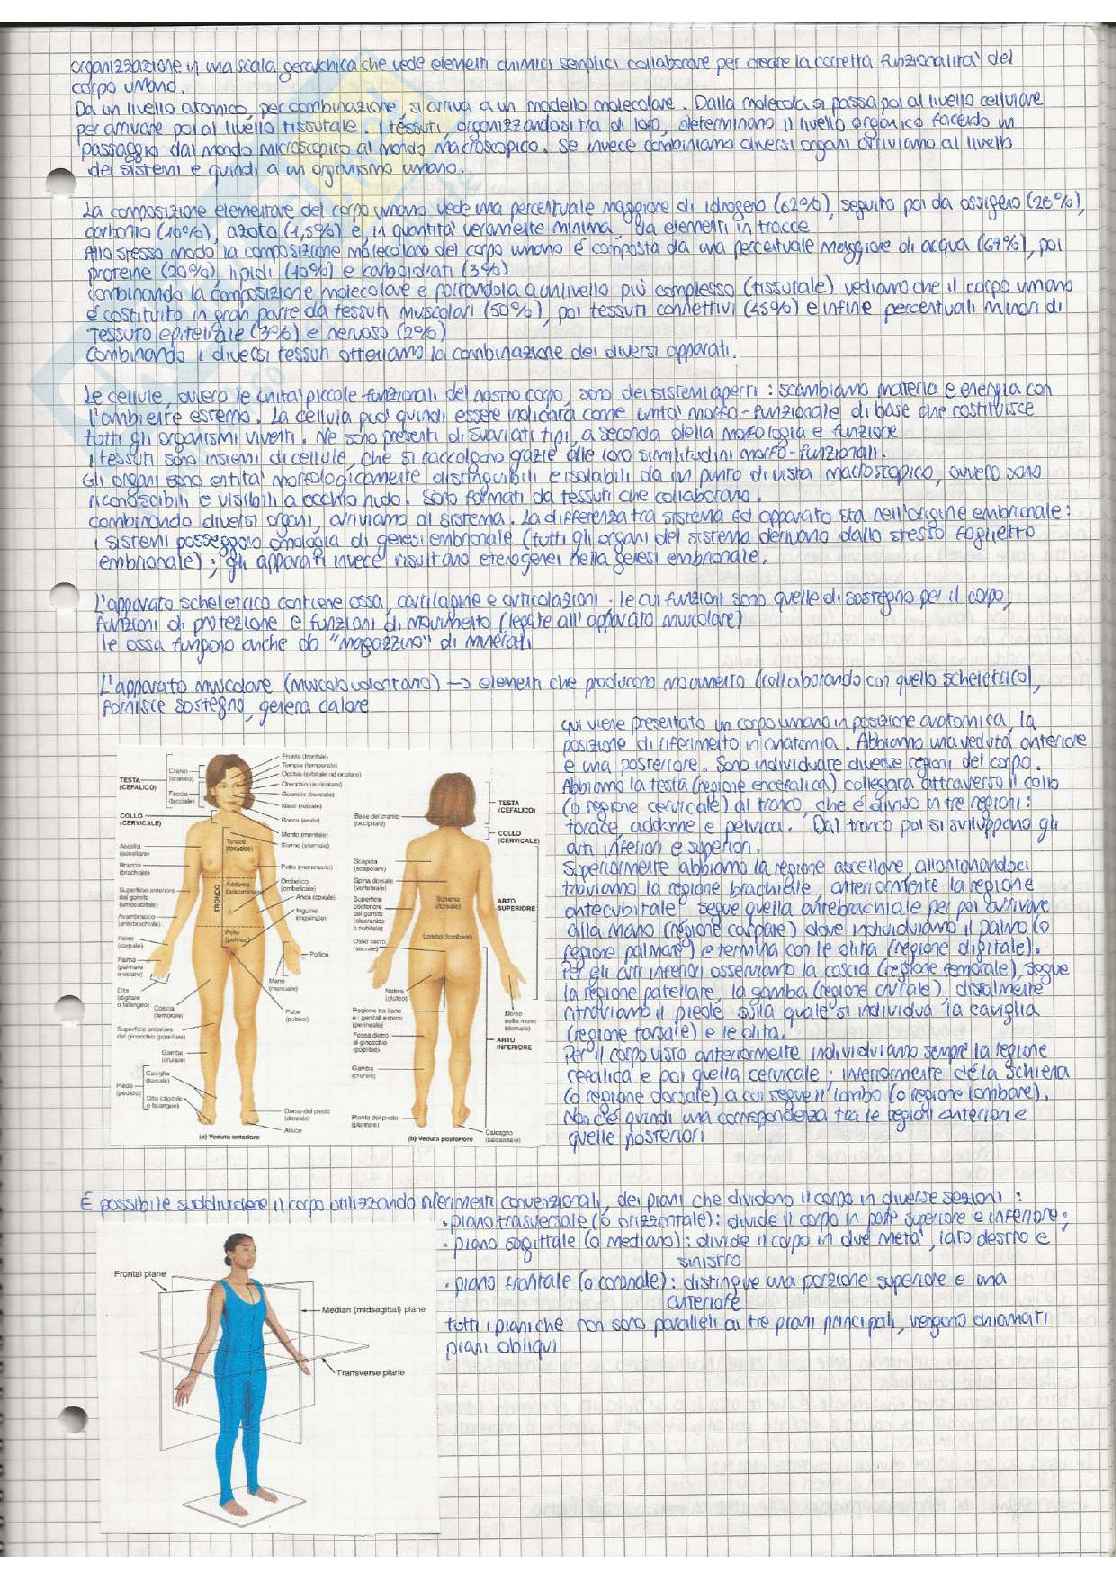 organizzazione in una scala gerarchica che vede elementi chimici semplici collaborare per creare la corretta funzionalità del
corpo umano.
Da un livello atomico, per combinazione, si arriva a un modello molecolare. Dalla molecola si passa poi al livello cellulare
per arrivare poi al livello tissutale. I tessuti, organizzandosi tra di loro, determinano il livello organico facendo un
passaggio dal mondo microscopico al mondo macroscopico. Se invece combiniamo diversi organi arriviamo al livello
dei sistemi e quindi a un organismo umano.
La composizione elementare del corpo umano vede una percentuale maggiore di idrogeno (62%), seguito poi da ossigeno (26%),
carbonio (10%), azoto (1,5%) e, in quantità veramente minima da elementi in tracce
Allo stesso modo la composizione molecolare del corpo umano è composta da una percentuale maggiore di acqua (67%), poi
proteine (20%), lipidi (10%) e carboidrati (3%)
combinando la composizione molecolare e portandola a un livello più complesso (tissutale) vediamo che il corpo umano
è costituito in gran parte da tessuti muscolari (50%), poi tessuti connettivi (45%) e infine percentuali minori di
tessuto epiteliale (3%) e nervoso (2%)
Combinando i diversi tessuti otteniamo la combinazione dei diversi apparati.
Le cellule, ovvero le unità piccole funzionali del nostro corpo, sono dei sistemi aperti: scambiano materia e energia con
l'ambiente esterno. La cellula può quindi essere indicata come unità morfo-funzionale di base che costituisce
tutti gli organismi viventi. Ne sono presenti di svariati tipi, a seconda della morfologia e funzione
I tessuti sono insiemi di cellule, che si raccolgono grazie alle loro similitudini morfo-funzionali.
Gli organi sono entità morfologicamente distinguibili e isolabili da un punto di vista macroscopico, ovvero sono
riconoscibili e visibili a occhio nudo. Sono formati da tessuti che collaborano.
Combinando diversi organi, arriviamo al sistema. La differenza tra sistema ed apparato sta nell'origine embrionale:
i sistemi posseggono omologia di genesi embrionale (tutti gli organi del sistema derivano dallo stesso foglietto
embrionale); gli apparati invece risultano eterogenei nella genesi embrionale.
L'apparato scheletrico contiene ossa, cartilagine e articolazioni. le cui funzioni sono quelle di sostegno per il corpo,
funzioni di protezione e funzioni di movimento (legate all'apparato muscolare)
le ossa fungono anche da "magazzino" di minerali
L'apparato muscolare (muscolo volontario) → elementi che producono movimento (collaborando con quello scheletrico),
fornisce sostegno, genera calore
Qui viene presentato un corpo umano in posizione anatomica, la
posizione di riferimento in anatomia. Abbiamo una veduta anteriore
e una posteriore. Sono individuate diverse regioni del corpo.
Abbiamo la testa (regione encefalica) collegata attraverso il collo
(o regione cervicale) al tronco, che è diviso in tre regioni:
torace, addome e pelvica. Dal tronco poi si sviluppano gli
arti inferiori e superiori.
Superiormente abbiamo la regione ascellare, allontanandoci
troviamo la regione brachiale, anteriormente la regione
antecubitale segue quella antebrachiale per poi arrivare
alla mano (regione carpale) dove individuiamo il palmo (o
regione palmare) e termina con le dita (regione digitale).
Per gli arti inferiori osserviamo la coscia (regione femorale), segue
la regione patellare, la gamba (regione crurale), distalmente
ritroviamo il piede sulla quale si individua la caviglia
(regione tarsale) e le dita.
Per il corpo visto anteriormente individuiamo sempre la regione
cefalica e poi quella cervicale; inferiormente c'è la schiena
(o regione dorsale) a cui segue il lombo (o regione lombare).
Non c'è quindi una corrispondenza tra le regioni anteriori e
quelle posteriori
TESTA
(CEFALICO)
Cranio
Faccia
(facciale)
COLLO
(CERVICALE)
Ascella
(ascellare)
Braccio
(brachiale)
Superficie anteriore
del gomito
Avambraccio
(antibrachiale)
Polso
(carpale)
Palma
Dita
(digitale
o falangeo)
Coscia
(femorale)
Superficie anteriore
del ginocchio (patellare)
Gamba
(crurale)
Caviglia
(tarsale)
Piede
Fronte (frontale)
Tempia (temporale)
Mento (mentale)
Sterno (sternale)
Torace
TRONCO
Addome
Ombelico
(ombelicale)
Anca (coxale)
Inguine
Pollice
Mano
(manuale)
Pube
(pubico)
Alluce
(a) Veduta anteriore
Base del cranio
Scapola
(scapolare)
Spina dorsale
(vertebrale)
Superficie
posteriore
del gomito
Osso sacro
Natica
(gluteo)
Fossa dietro
al ginocchio
(poplitea)
Gamba
Pianta del piede
(plantare)
Schiena
(dorsale)
Lombo (lombare)
TESTA
(CEFALICO)
COLLO
(CERVICALE)
ARTO
SUPERIORE
Dorso
della mano
ARTO
INFERIORE
Calcagno
(calcaneale)
(b) Veduta posteriore
È possibile suddividere il corpo utilizzando riferimenti convenzionali, dei piani che dividono il corpo in diverse sezioni:
· piano trasversale (o orizzontale): divide il corpo in parte superiore e inferiore;
· piano sagittale (o mediano): divide il corpo in due metà, lato destro e
sinistro
· piano frontale (o coronale): distingue una porzione superiore e una
anteriore
tutti i piani che non sono paralleli ai tre piani principali, vengono chiamati
piani obliqui
Frontal plane
Median (midsagittal) plane
Transverse plane